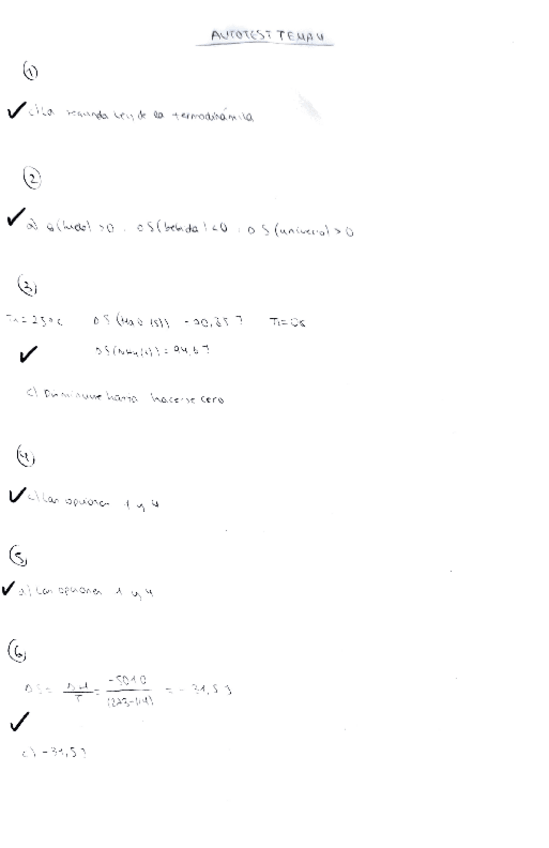 AUTOTEST TEMA 4
①
✓ c) La segunda ley de la termodinámica
②
✓ a) (hielo) >0 . ΔS (bebida) <0 . ΔS (universo) > 0
③
✓
c) Disminuye hasta hacerse cero
④
✓ c) Las opciones 1 y 4
⑤
✓ a) Las opciones 1 y 4
⑥
ΔS = ΔH / T = -5010 / (273-114) = - 31,5 J
✓
c) -31,5 J